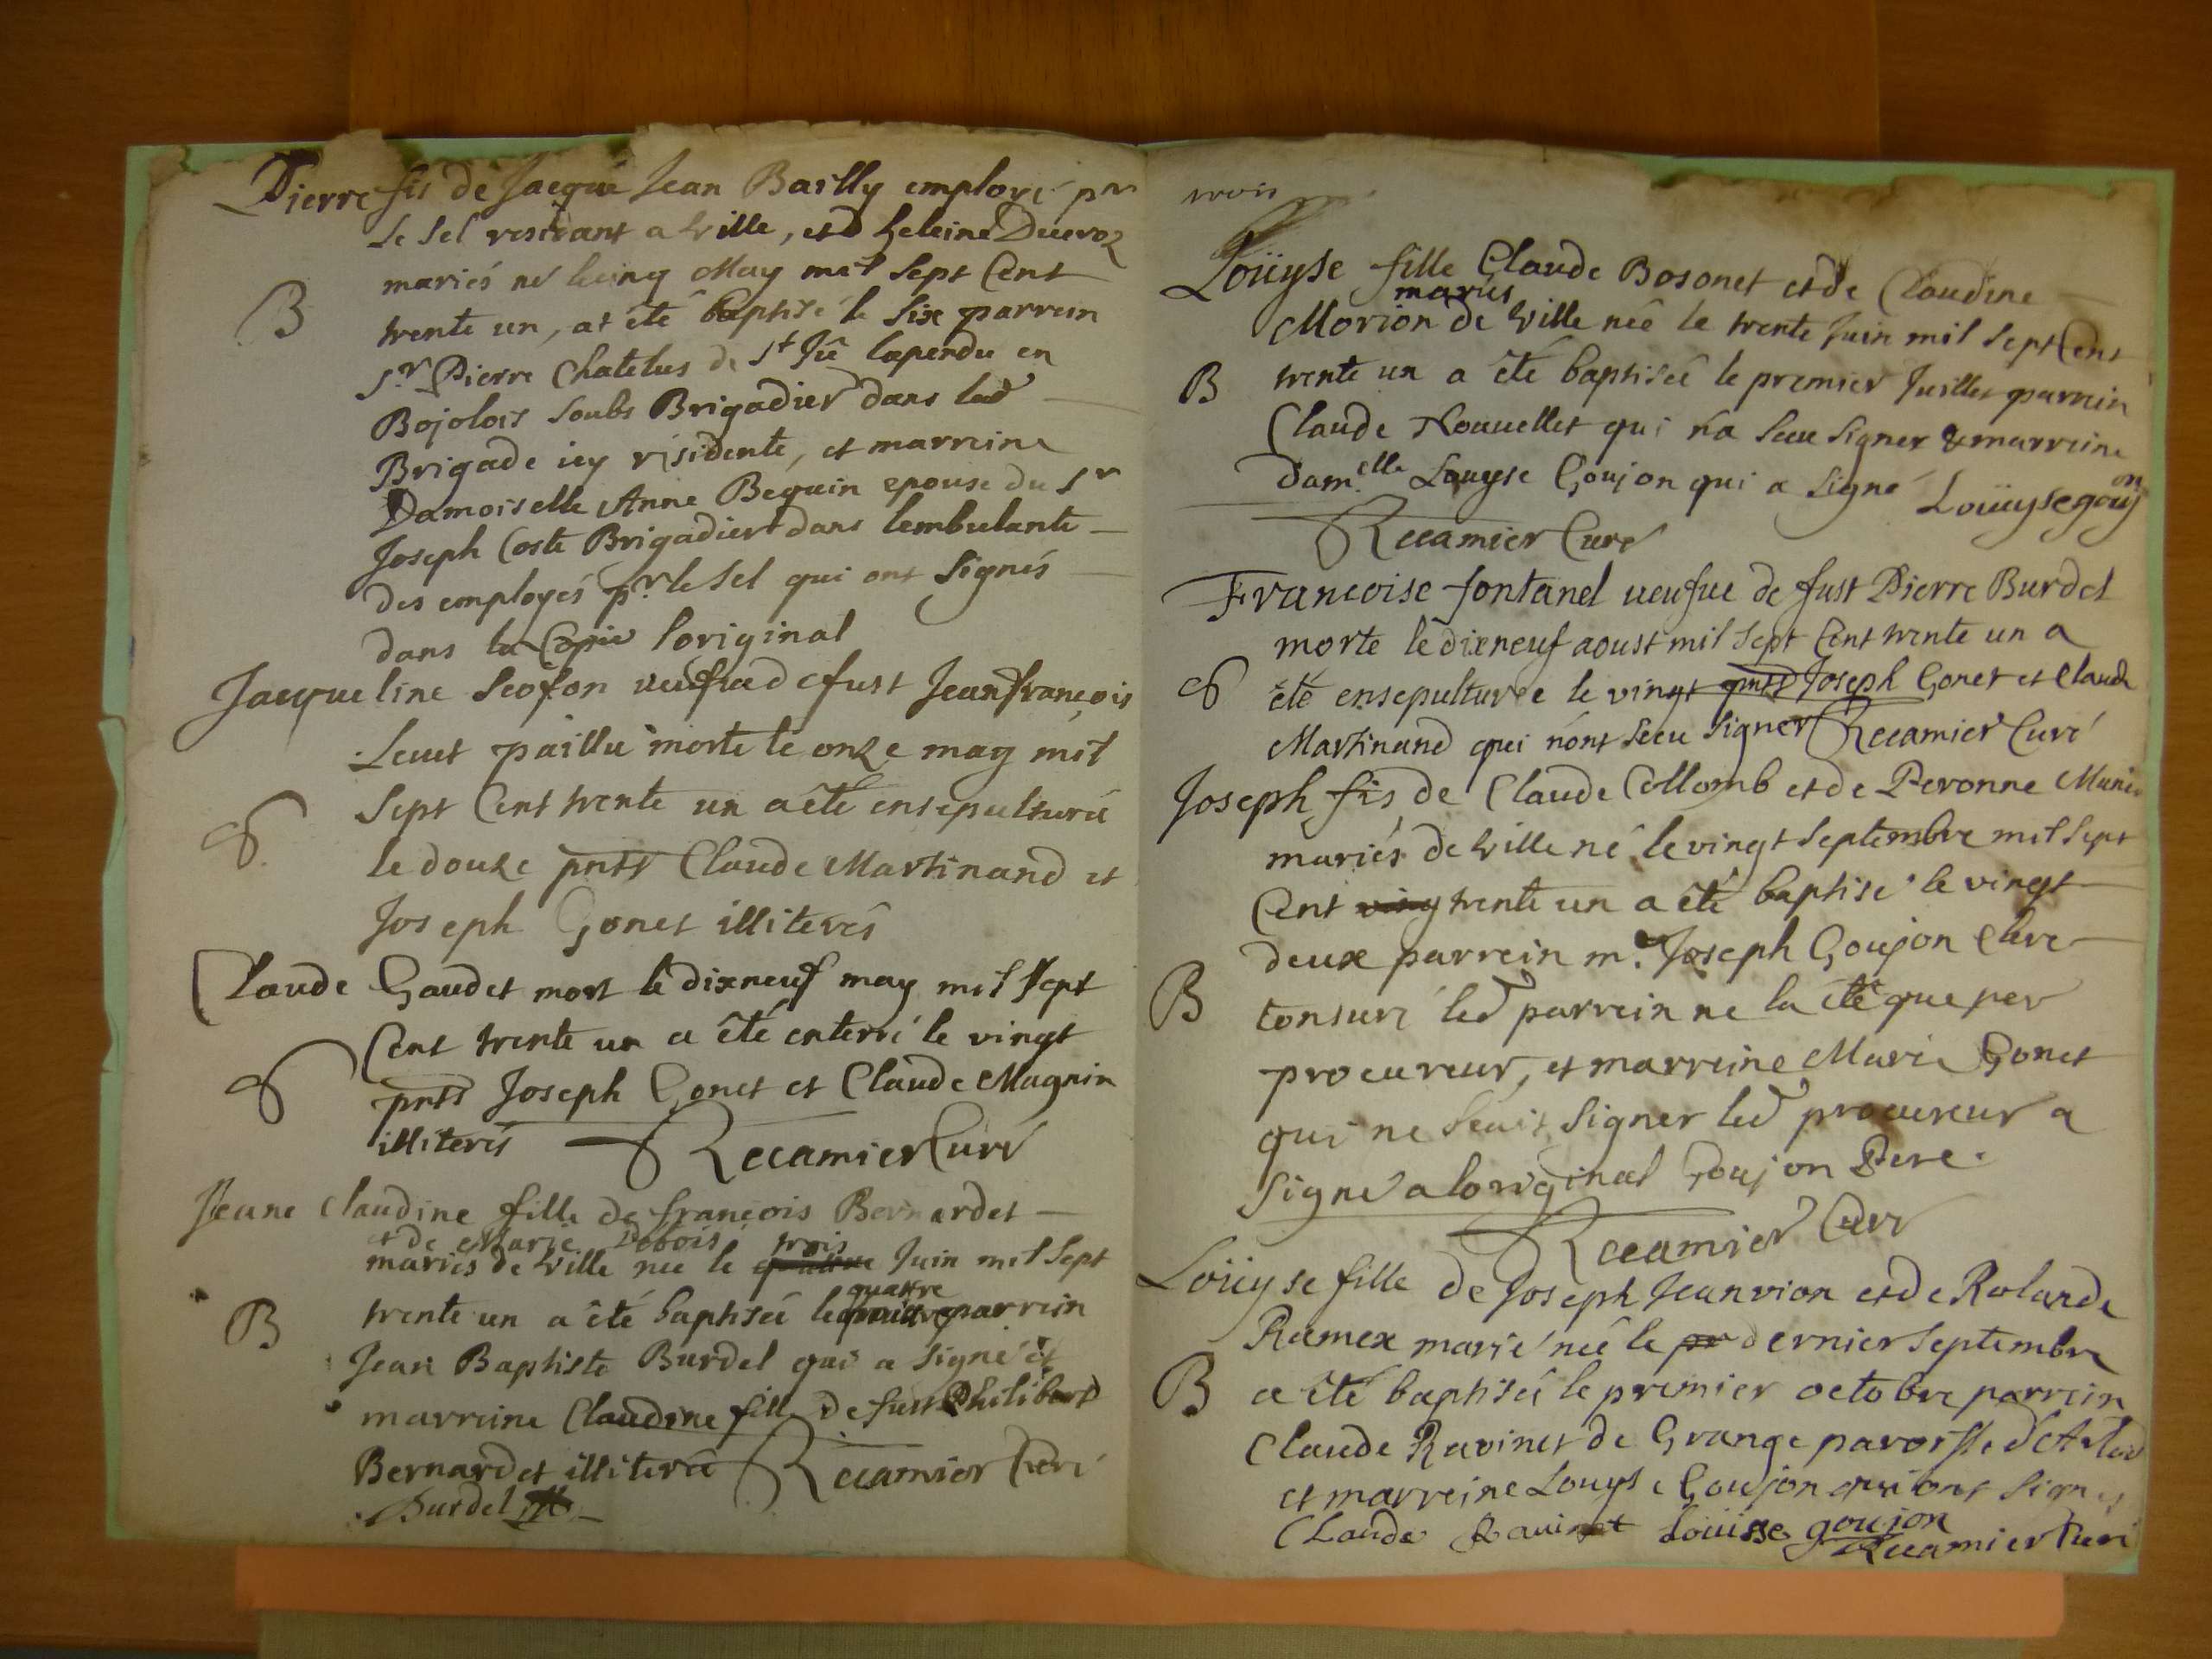 Pierre fis de Jacque Jean Bailly employé pr
le Sel residant a Ville, et d heleine Ducroz
mariés né le cinq May mil Sept Cent
B
trente un, at été baptisé le Six parrein
Sr. Pierre Chatelus de St Jû laperdu en
Bojolois Soubs Brigadier dans lad
Brigade icy résidente, et marreine
Damoiselle Anne Beguin epouse du Sr
Joseph Coste Brigadier dans lembulante
des employés pr. le Sel qui ont Signés
dans la Copie loriginal
Jacqueline veufue de fust Jeanfrançois
paillu morte le onze may mil
Sept Cent trente un a été ensepulturé
S.
le douze pnts Claude Martinand et
Joseph Gonet illiterés
Claude Gaudet mort le dixneuf may mil Sept
Cent trente un a été enterré le vingt
S
pnts Joseph Gonet et Claude Magnin
illiterés Recamier Curé
Jeane Claudine fille de françois Bernardet
et de Marie Debois trois
mariés de Ville née le quattre Juin mil Sept
quattre
B
trente un a été baptisée le parrein
Jean Baptiste Burdel qui a Signé et
marreine Claudine fille de fust Philibert
Bernardet illiteré Recamier Curé
Burdel
trois
Loüyse fille Claude Bosonet et de Claudine
mariés
Morion de Ville née le trente Juin mil Sept Cent
B
trente un a été baptiseé le premier Juillet parrein
Claude Nouuellet qui na Sceu Signer & marreine
dam.elle Louyse Goujon qui a Signé Loüuyse goujon
Recamier Curé
Francoise fontanel ueufue de fust Pierre Burdel
morte le dixneuf aoust mil Sept Cent trente un a
S
été ensepulturée le vingt pnts Joseph Gonet et Claude
Martinand qui nónt Sceu Signer Recamier Curé
Joseph fis de Claude Collomb et de Peronne
mariés de Ville né le vingt Septembre mil Sept
Cent ving trente un a été baptisé le vingt
deux parrein m.e Joseph Goujon Clerc
B
tonsuré led parrein ne la été que per
procureur, et marreine Marie Gonet
qui ne Scait Signer led procureur a
Signé a loriginal Goujon Pere.
Recamier Curé
Loüyse fille de Joseph Jeanvion et de Rolande
Ramex marié née le pr dernier Septembre
B
a été baptisée le premier octobre parrein
Claude Ravinet de Grange paroisse
et marreine Louyse Goujon qui ont Signés
Claude Rauinet Louisse goujon
Recamier Curé